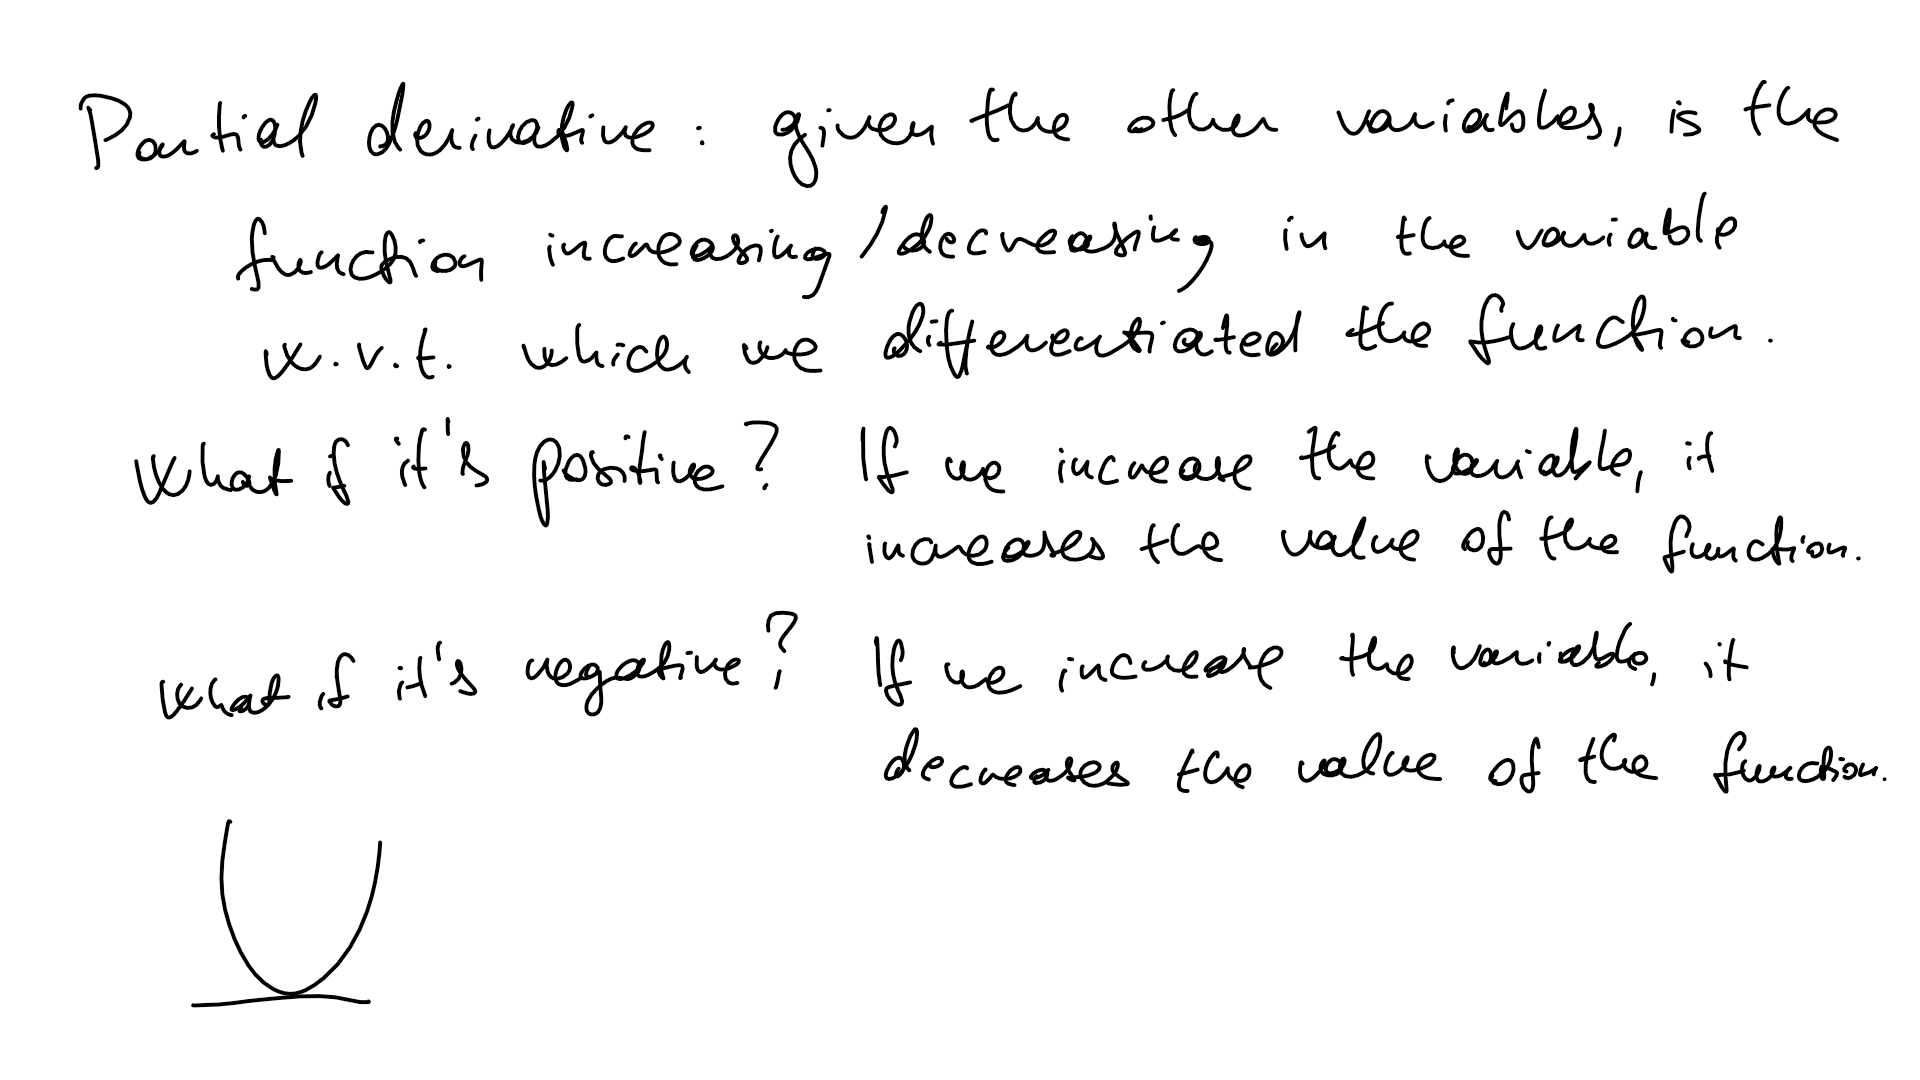 Partial derivative: given the other variables, is the
function increasing/decreasing in the variable
w.r.t. which we differentiated the function.
What if it's positive? If we increase the variable, it
increases the value of the function.
What if it's negative? If we increase the variable, it
decreases the value of the function.